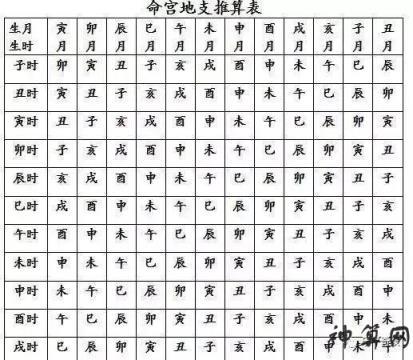 命宫地支推算表
生月 寅 卯 辰 巳 午 未 申 酉 戌 亥 子 丑
生时 月 月 月 月 月 月 月 月 月 月 月 月
子时 卯 寅 丑 子 亥 戌 酉 申 未 午 巳 辰
丑时 寅 丑 子 亥 戌 酉 申 未 午 巳 辰 卯
寅时 丑 子 亥 戌 酉 申 未 午 巳 辰 卯 寅
卯时 子 亥 戌 酉 申 未 午 巳 辰 卯 寅 丑
辰时 亥 戌 酉 申 未 午 巳 辰 卯 寅 丑 子
巳时 戌 酉 申 未 午 巳 辰 卯 寅 丑 子 亥
午时 酉 申 未 午 巳 辰 卯 寅 丑 子 亥 戌
未时 申 未 午 巳 辰 卯 寅 丑 子 亥 戌 酉
申时 未 午 巳 辰 卯 寅 丑 子 亥 戌 酉 申
酉时 午 巳 辰 卯 寅 丑 子 亥 戌 酉 申 未
戌时 巳 辰 卯 寅 丑 子 亥 戌 酉 申 未 午
神算网